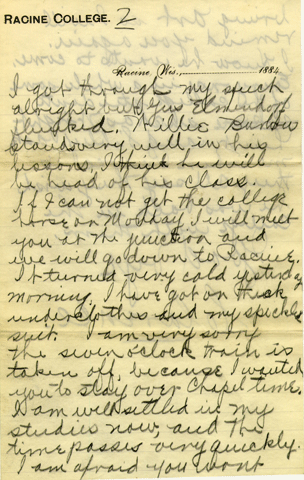 RACINE COLLEGE. 2
Racine, Wis., 1884
I got through my speech
alright but Gus Elmendorf
flunked. Willie Barlow
stands very well in his
lessons. I think he will
be head of his class.
If I can not get the college
horse on Monday I will meet
you at the junction and
we will go down to Racine.
It turned very cold yesterday
morning. I have got on thick
underclothes and my speckled
suit. I am very sorry
the seven o'clock train is
taken off, because I wanted
you to stay over Chapel time.
I am well settled in my
studies now, and the
time passes very quickly.
I am afraid you wont